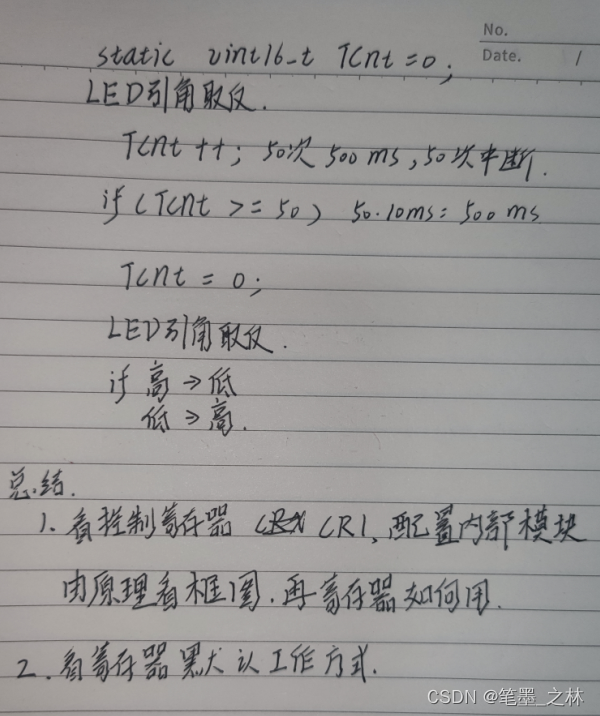 No.
Date. /
static uint16_t TCnt = 0;
LED引角取反.
TCnt ++; 50次 500ms, 50次中断.
if (TCnt >= 50) 50·10ms = 500ms
TCnt = 0;
LED引角取反.
if 高→低
低→高.
总结.
1. 看控制寄存器 CR1, 配置内部模块
由原理看框图. 再寄存器如何用.
2. 看寄存器默认工作方式.
CSDN @笔墨_之林